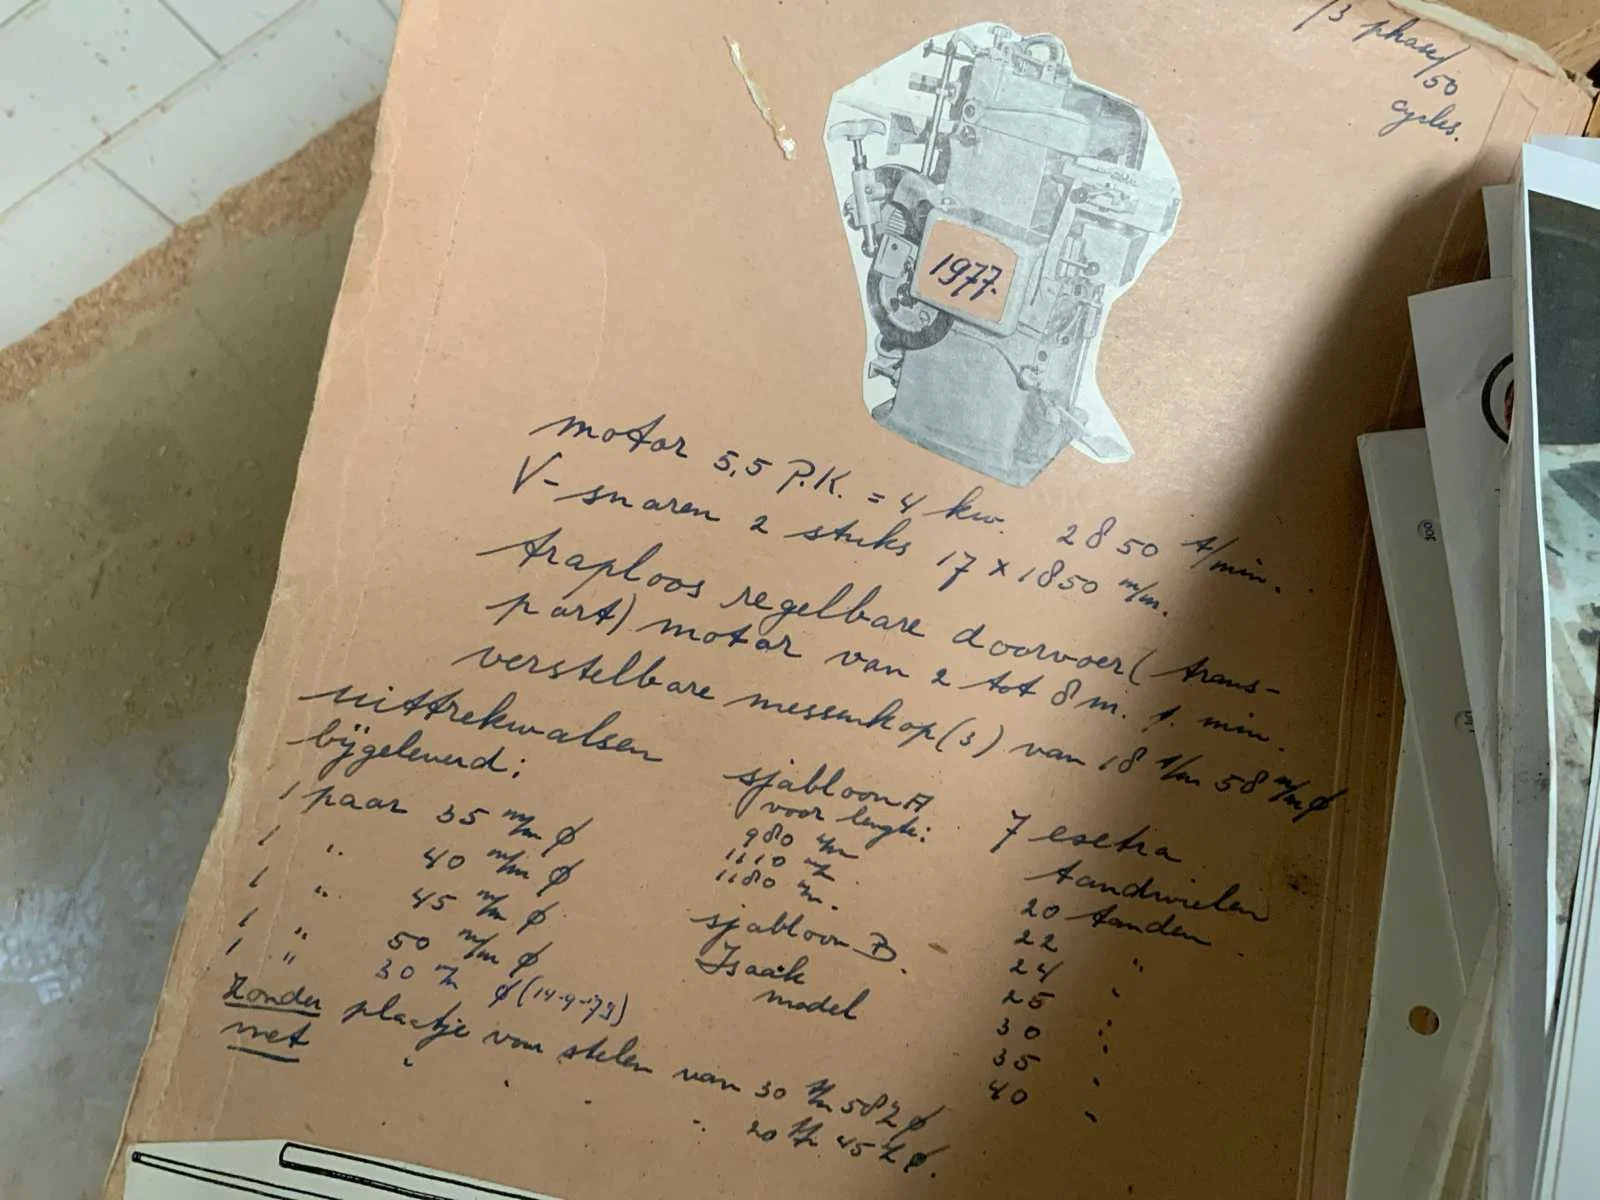 /3 phase/
50
cycles.
1977.
motor 5,5 P.K. = 4 kw. 2850 t/min.
V-snaren 2 stuks 17 x 1850 m/m.
traploos regelbare doorvoer (trans-
port) motor van 2 tot 8 m. p. min.
verstelbare messenkop (3) van 18 t/m 58 m/m ϕ
uittrekwalsen
bijgeleverd:
1 paar 35 m/m ϕ
1 " 40 m/m ϕ
1 " 45 m/m ϕ
1 " 50 m/m ϕ
1 " 30 m/m ϕ (14-9-79)
sjabloon A
voor lengte:
980 m/m
1110 m/m
1180 m/m.
sjabloon B.
Isaak
model
7 esetra
tandwielen
20 tanden
22 "
24 "
25 "
30 "
35 "
40 "
Zonder plaatje voor stelen van 30 t/m 58 m/m ϕ
met " " " " 20 t/m 45 m/m ϕ.
300